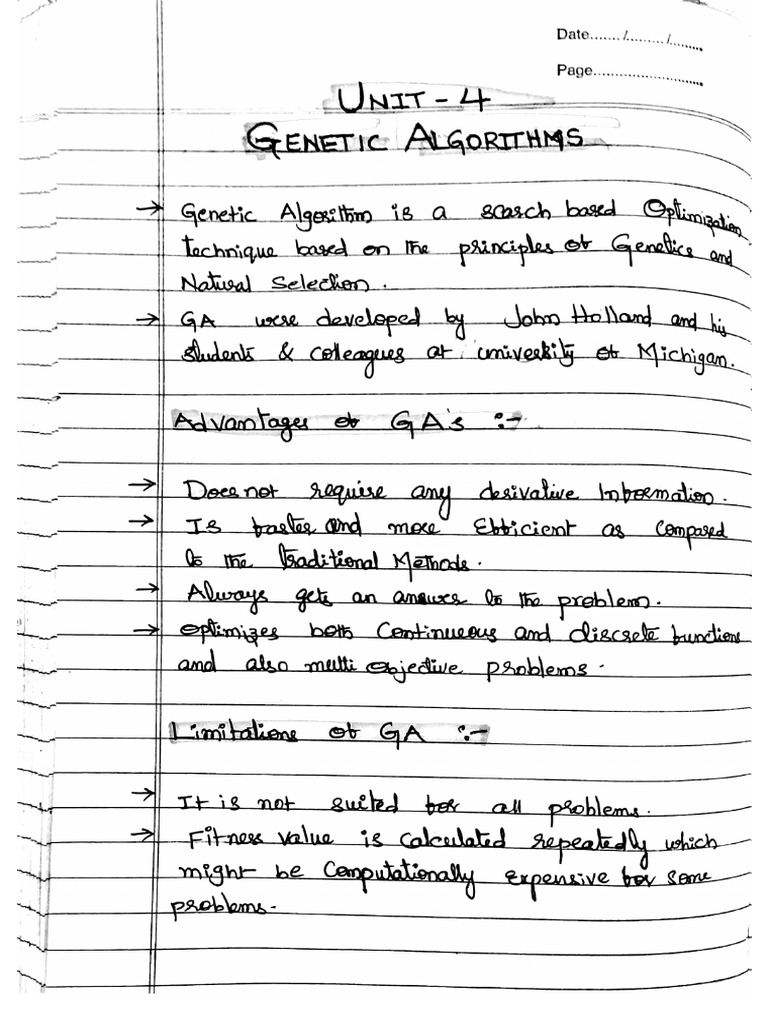 Date......./........./.........
Page...........................
UNIT - 4
GENETIC ALGORITHMS
→ Genetic Algorithm is a search based Optimization
technique based on the principles of Genetics and
Natural Selection.
→ GA were developed by John Holland and his
students & colleagues at university of Michigan.
Advantages of GA's :-
→ Does not require any derivative Information.
→ Is faster and more Efficient as compared
to the traditional Methods.
→ Always gets an answer to the problem.
→ optimizes both Continueous and discrete functions
and also multi objective problems.
Limitations of GA :-
→ It is not suited for all problems.
→ Fitness value is calculated repeatedly which
might be computationally expensive for some
problems.